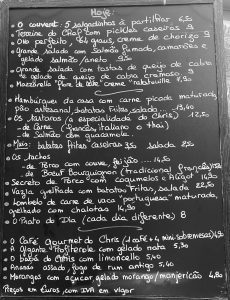 Hoje:
• O couvert: 5 salgadinhos à partilhar 6,50
• Terrine do Chef com pickles caseiros 9
• Ovo perfeito, creme de chorizo 9
• Grande salada com Salmão fumado, camarões e
gelado salmão/caviar
• Grande salada com tostas de queijo de cabra
e gelado de queijo de cabra cremoso
• Mozzarella "flor de leite" creme "ratatouille"
• Hambúrguer da casa com carne picada maturada,
pão artesanal, batatas fritas, salada 13,40
• OS Tártaros (a especialidade do Chris) 12,50
- de Carne (francês, italiano o thai)
- de Salmão com guacamole
• Mais: batatas fritas caseiras 3,50 salada
• Os tachos
- de Porco com couve, feijão .... 14,50
- de Boeuf Bourguignon (tradicional francês)
• Secretos de Porco com cogumelos e 14,90
• Vazia grelhada com batatas fritas, salada 22,50
• Lombelo de carne de vaca "portuguesa" maturada,
grelhado com chalotas 14,90
• O Prato do Dia (cada dia diferente) 8
• O Café Gourmet do Chris (café + 4 mini sobremesas)
• A Gigante Profiterole com gelado mota 5,90
• O babá do Chris com limoncello 5,40
• Ananás assado, fogo de rum antigo 5,40
• Morangos com açúcar, gelado morango/manjericão 4,80
Preços em Euros, com IVA em vigor